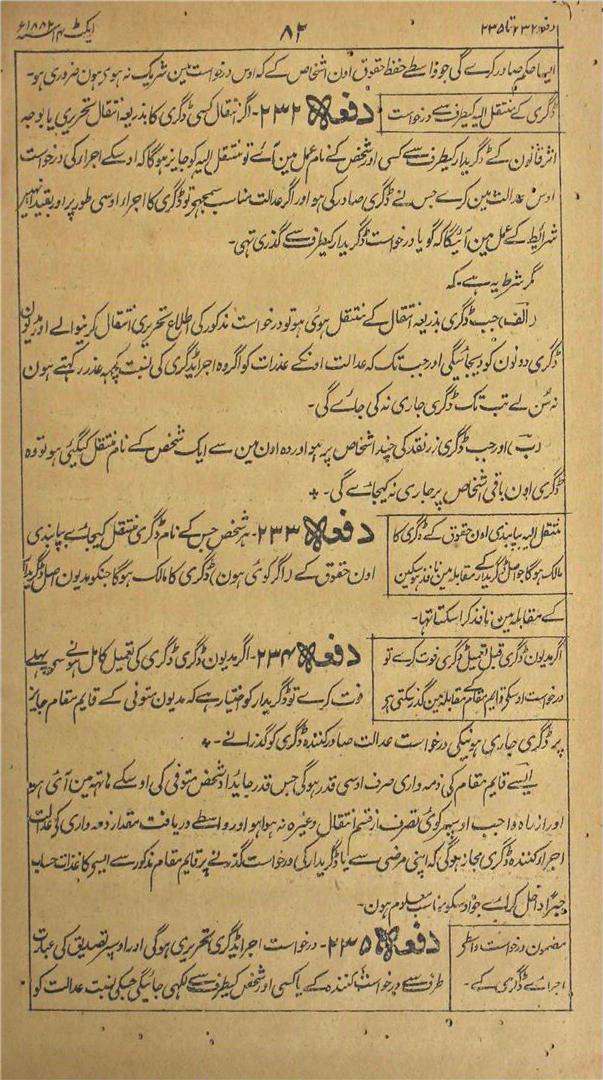 دفعہ ۲۳۲ تا ۲۳۵
۸۲
ایکٹ ۱۴ سنہ ۱۸۸۲ء
ایسا حکم صادر کرے گی جو واسطے حفظ حقوق اون اشخاص کے کہ اوس درخواست مین شریک نہ ہوی ہون ضروری ہو۔
ڈگری کے منتقل الیہ کیطرف سے درخواست
دفعہ ۲۳۲۔ اگر انتقال کسی ڈگری کا بذریعہ انتقال تحریری یا بوجہ
اثر قانون کے ڈگریدار کیطرف سے کسی اور شخص کے نام عمل مین آئے تو منتقل الیہ کو جایز ہوگا کہ اوسکے اجرار کی درخواست
اوس عدالت مین کرے جس نے ڈگری صادر کی ہو اور اگر عدالت مناسب سمجھے تو ڈگری کا اجرار اوسی طور پر اور بقید انہین
شرائط کے عمل مین آئیگا کہ گویا درخواست ڈگریدار کیطرف سے گذری تہی۔
مگر شرط یہ ہے۔ کہ
(الف) جب ڈگری بذریعہ انتقال کے منتقل ہوئی ہو تو درخواست مذکور کی اطلاع تحریری انتقال کرنیوالے اور مدیون
ڈگری دونون کو دیجائیگی اور جب تک کہ عدالت اونکے عذرات کو اگر وہ اجرا ڈیگری کی نسبت کچہ عذر رکہتے ہون
نہ سُن لے تب تک ڈگری جاری نہ کی جائے گی۔
(ب) اور جب ڈگری زرنقد کی چند اشخاص پر ہو اور وہ اون مین سے ایک شخص کے نام منتقل کیگئی ہو تو وہ
ڈگری اون باقی اشخاص پر جاری نہ کیجائے گی۔ ٭
منتقل الیہ بپابندی اون حقوق کے ڈگری کا
مالک ہوگا جو اصل ڈگریدار کے مقابلہ مین نافذ ہو سکین
دفعہ ۲۳۳۔ ہر شخص جس کے نام ڈگری منتقل کیجائے بپابندی
اون حقوق کے (اگر کوئی ہون) ڈگری کا مالک ہوگا جنکو مدیون اصل ڈگریدار
کے مقابلہ مین نافذ کرا سکتا تہا۔
اگر مدیون ڈگری قبل تعمیل ڈگری فوت کرے تو
درخواست اوسکی قایم مقام کے مقابلہ مین گذر سکتی ہے
دفعہ ۲۳۴۔ اگر مدیون ڈگری ڈگری کی تعمیل کامل ہونے سے پہلے
فوت کرے تو ڈگریدار کو اختیار ہے کہ مدیون متوفی کے قایم مقام جایز
پر ڈگری جاری ہونیکی درخواست عدالت صادر کنندہ ڈگری کو گذرانے۔ ٭
ایسے قایم مقام کی ذمہ واری صرف اوسی قدر ہوگی جس قدر جایداد شخص متوفی کی اوسکے ہاتہہ مین آئی ہو
اور از راہ واجب اوسپر کوئی تصرف از قسم انتقال وغیرہ نہ ہوا ہو اور واسطے دریافت مقدار ذمہ واری کی عدالت
اجراء کنندہ ڈگری مجاز ہوگی کہ اپنی مرضی سے یا ڈگریدار کی درخواست گذرنے پر قایم مقام مذکور سے ایسی کاغذات حساب
جبراً داخل کرائے جو اوسکو مناسب معلوم ہون۔
مضمون درخواست واسطی
اجراے ڈگری کے۔
دفعہ ۲۳۵۔ درخواست اجرا ڈیگری تحریری ہوگی اور اوسپر تصدیق کی عبارت
طرف سے درخواست کنندہ کے یا کسی اور شخص کیطرف سے لکہی جائیگی جسکی نسبت عدالت کو